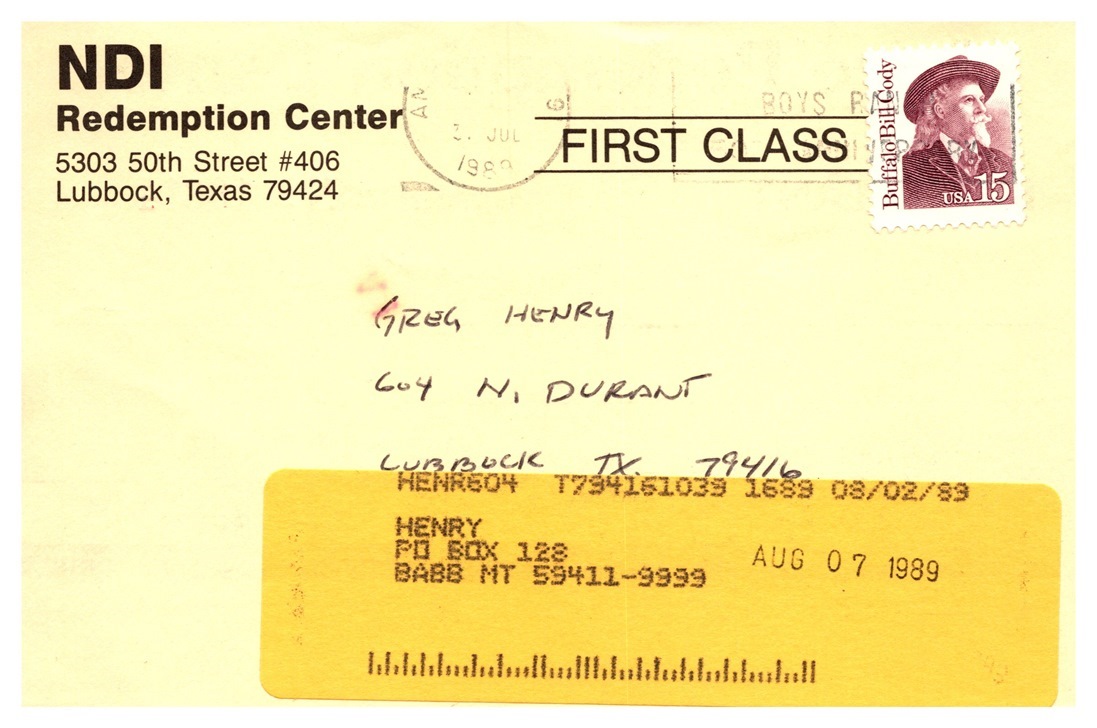 NDI
Redemption Center
5303 50th Street #406
Lubbock, Texas 79424
JUL
1989
BOYS
FIRST CLASS
Buffalo Bill Cody
USA 15
GREG HENRY
604 N. DURANT
LUBBOCK TX. 79416
HENR604 T794161039 1689 08/02/89
HENRY
PO BOX 128
BABB MT 59411-9999
AUG 07 1989